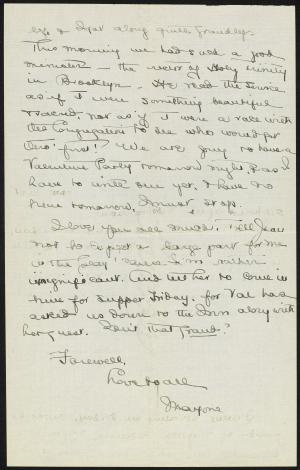 eyes & Slept along quite Grandly.
This morning we had such a good
minister – the rector of Holy Trinity
in Brooklyn. He read the service
as if it were something beautiful
& sacred, not as if it were a race with
the Congregation to see who would get
thro' first! We are going to have a
Valentine Party tomorrow night, & as I
have to write one yet, & have no
time tomorrow, I must stop.
I love you all much. Tell Jean
not to expect a large part for me
in the play, 'cause I'm rather
insignificant. And tell her to come in
time for supper Friday, for Val has
asked us down to the Inn along with
her guest. Isn't that Grand?
Farewell,
Love to all
Maryone